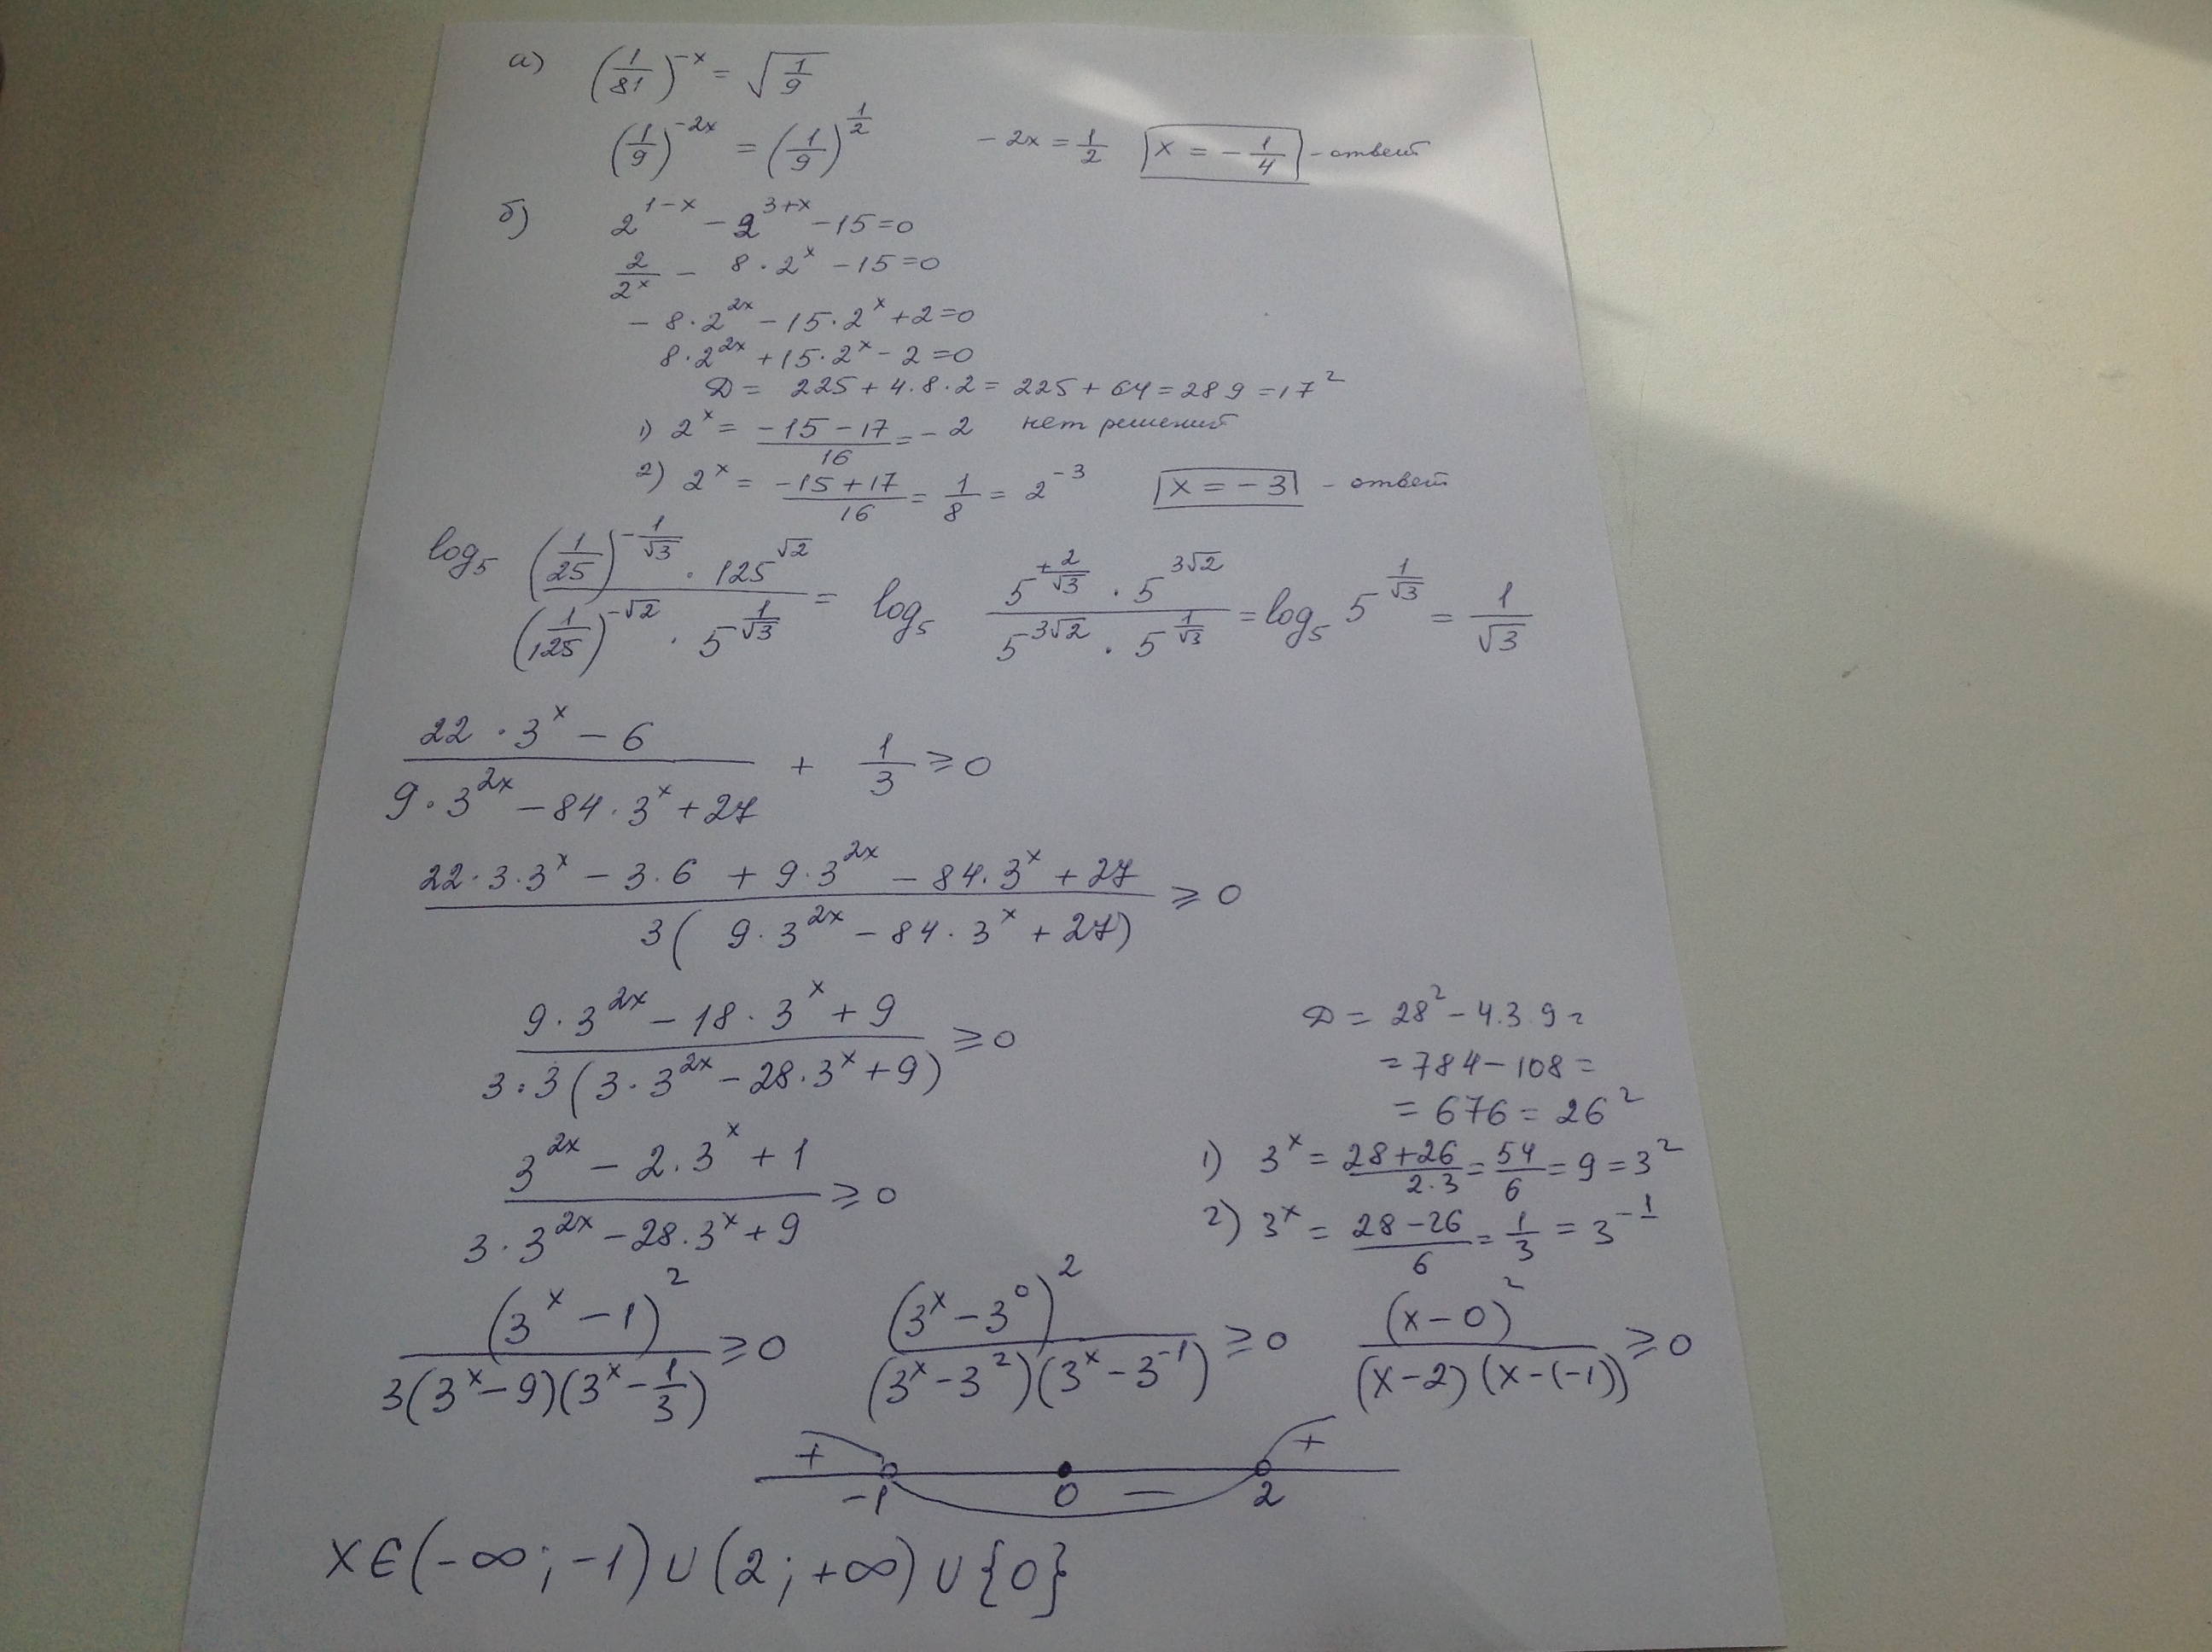 а) (1/81)^(-x) = √(1/9)
(1/9)^(-2x) = (1/9)^(1/2) -2x = 1/2 x = -1/4 - ответ
б) 2^(1-x) - 2^(3+x) - 15 = 0
2/2^x - 8 · 2^x - 15 = 0
- 8 · 2^(2x) - 15 · 2^x + 2 = 0
8 · 2^(2x) + 15 · 2^x - 2 = 0
D = 225 + 4 · 8 · 2 = 225 + 64 = 289 = 17²
1) 2^x = (-15 - 17)/16 = -2 нет решений
2) 2^x = (-15 + 17)/16 = 1/8 = 2^(-3) x = -3 - ответ
log₅ ((1/25)^(-1/√3) · 125^(√2))/((1/125)^(-√2) · 5^(1/√3)) = log₅ (5^(+2/√3) · 5^(3√2))/(5^(3√2) · 5^(1/√3)) = log₅ 5^(1/√3) = 1/√3
(22 · 3^x - 6)/(9 · 3^(2x) - 84 · 3^x + 27) + 1/3 ⩾ 0
(22 · 3 · 3^x - 3 · 6 + 9 · 3^(2x) - 84 · 3^x + 27)/(3(9 · 3^(2x) - 84 · 3^x + 27)) ⩾ 0
(9 · 3^(2x) - 18 · 3^x + 9)/(3 · 3(3 · 3^(2x) - 28 · 3^x + 9)) ⩾ 0
(3^(2x) - 2 · 3^x + 1)/(3 · 3^(2x) - 28 · 3^x + 9) ⩾ 0
D = 28² - 4 · 3 · 9 =
= 784 - 108 =
= 676 = 26²
1) 3^x = (28 + 26)/(2 · 3) = 54/6 = 9 = 3²
2) 3^x = (28 - 26)/6 = 1/3 = 3^(-1)
(3^x - 1)²/(3(3^x - 9)(3^x - 1/3)) ⩾ 0 (3^x - 3^0)²/((3^x - 3²)(3^x - 3^(-1))) ⩾ 0 (x - 0)²/((x - 2)(x - (-1))) ⩾ 0
+ +
-1 0 - 2
x ∈ (-∞; -1) ∪ (2; +∞) ∪ {0}